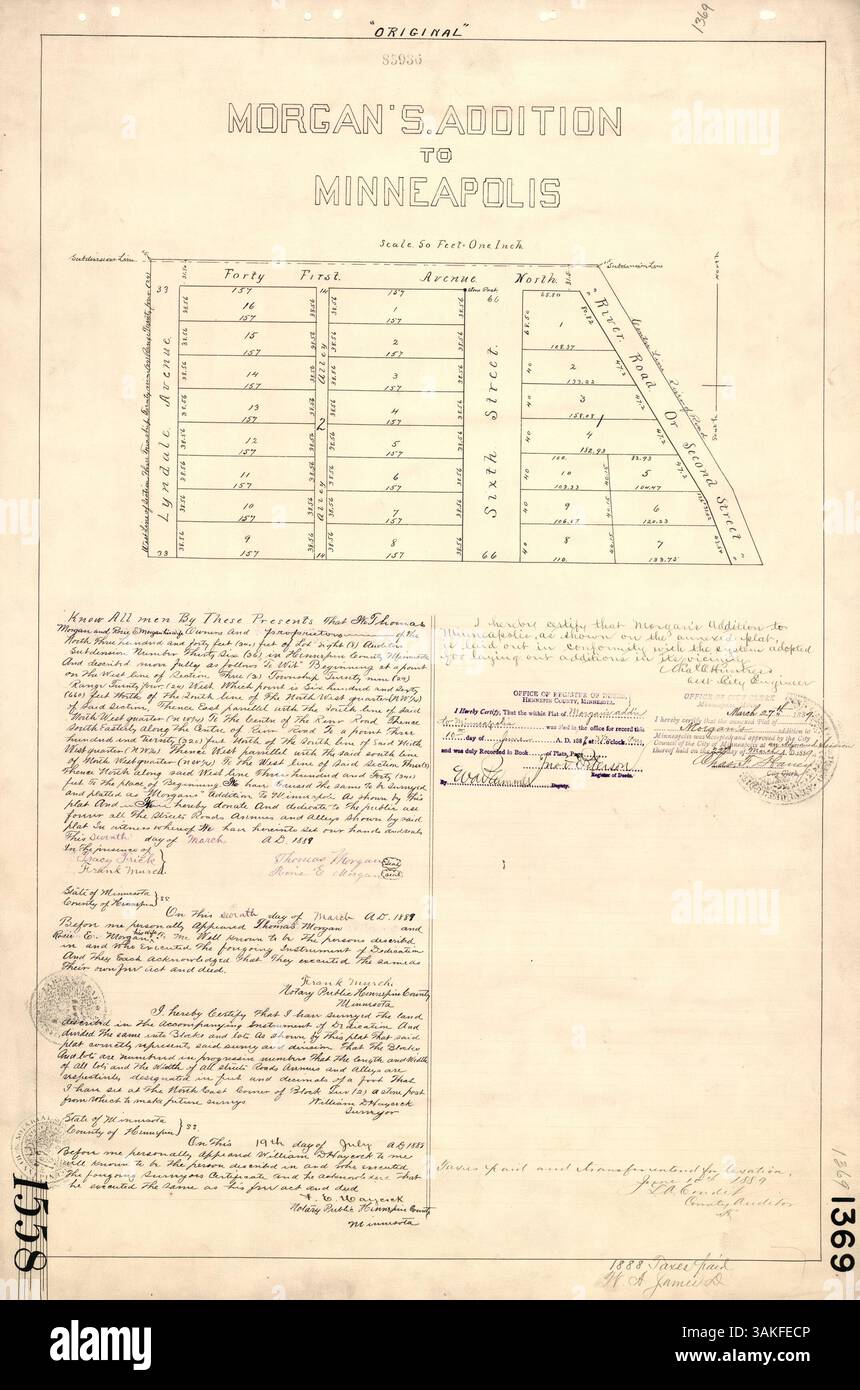 "ORIGINAL"
1369
85936
MORGAN'S. ADDITION
TO
MINNEAPOLIS
Scale. 50 Feet = One Inch
Subdivision Line
Subdivision Line
Forty First. Avenue North.
Lyndale Avenue.
Alley
Alley
Sixth Street.
"River Road Or Second Street"
Center Line River Road
North
South
Stone Post
33 157 14 157 66 65.80 31.5
16 1 1
157 157 108.37
15 2 2
157 157 133.22
14 3 3
157 157 158.08
13 4 4
157 157 182.93
12 5 10 5
157 157 103.33 104.47
11 6 9 6
157 157 106.67 120.23
10 7 8 7
157 157 110. 133.75
9 8
33 157 14 157 66
Know All men By These Presents That We Thomas
Morgan and Rosie E Morgan his wife Owners And proprietors of the
North Three hundred and forty feet (340) feet of Lot Eight (8) Auditors
Subdivision Number Thirty Six (36) in Hennepin County Minnesota
And described more fully as follows To Wit: Beginning at a point
on the West line of Section Three (3) Township Twenty nine (29)
Range Twenty four (24) West. Which point is Six hundred and Sixty
(660) feet North of The South line of The North West quarter (N.W¼)
of Said Section, Thence East parallel with The South line of Said
North West quarter (NW¼) To The Centre of The River Road Thence
South Easterly along The Centre of River road To a point Three
hundred and twenty (320) feet North of The South line of Said North
West quarter (N.W¼) Thence West parallel with the said south line
of North West quarter (NW¼) To The West line of Said Section Three (3)
Thence North along said West line Three hundred and Forty (340)
feet to the place of Beginning We have caused the same to be surveyed
and platted as "Morgans" Addition To Minneapolis As shown by This
plat And We hereby donate And dedicate to the public use
forever all The Streets Roads Avenues and Alleys shown by said
plat In witness whereof We have hereunto set our hands and seals
This Seventh day of March A.D. 1889
In the presence of
Tracy Frick
Frank Murch
Thomas Morgan seal
Rosie E. Morgan seal
State of Minnesota
County of Hennepin } ss.
On This Seventh day of March A.D. 1889
Before me personally Appeared Thomas Morgan and
Rosie E. Morgan his wife To Me Well known to be The persons described
in and who Executed The foregoing Instrument of Dedication
And They Each Acknowledged That They Executed The same as
Their own free act and deed.
Frank Murch
Notary Public Hennepin County
Minnesota
I hereby Certify That I have surveyed The land
described in the Accompanying Instrument of Dedication And
divided The same into Blocks and lots As shown by this plat That said
plat correctly represents said survey and division That The Blocks
And lots are numbered in progressive numbers That the length and Width
of all lots and The Width of all streets Roads Avenues and Alleys are
respectively designated in feet and decimals of a foot That
I have set at The North East Corner of Block Two (2) a stone post
from which to make future surveys
William D Haycock
Surveyor
State of Minnesota
County of Hennepin } ss.
On This 19th day of July A.D. 1888
Before me personally appeared William D Haycock to me
well known to be The person described in and who executed
The foregoing Surveyors Certificate and he acknowledged That
he executed The same as his free act and deed
Notary Public Hennepin County
Minnesota
I hereby certify that Morgan's Addition to
Minneapolis, as shown on the annexed plat,
is laid out in conformity with the system adopted
for laying out additions in its vicinity.
City Engineer
OFFICE OF REGISTER OF DEEDS,
HENNEPIN COUNTY, MINNESOTA.
I Hereby Certify, That the within Plat of Morgans addn
to Minneapolis was filed in the office for record this
10th day of June A. D. 188 9 at o'clock M.
and was duly Recorded in Book of Plats, Page
Register of Deeds.
By Deputy.
OFFICE OF CITY CLERK
March 27th 1889
I hereby certify that the annexed Plat of
Morgan's Addition to
Minneapolis was accepted and approved by the City
Council of the City of Minneapolis at an adjourned session
thereof held on March 1889
City Clerk
Taxes paid and transfer entered for taxation,
June 10th 1889
County Auditor
1888 Taxes paid
1558
1369
1369
alamy
Image ID: 3AKFECP
www.alamy.com